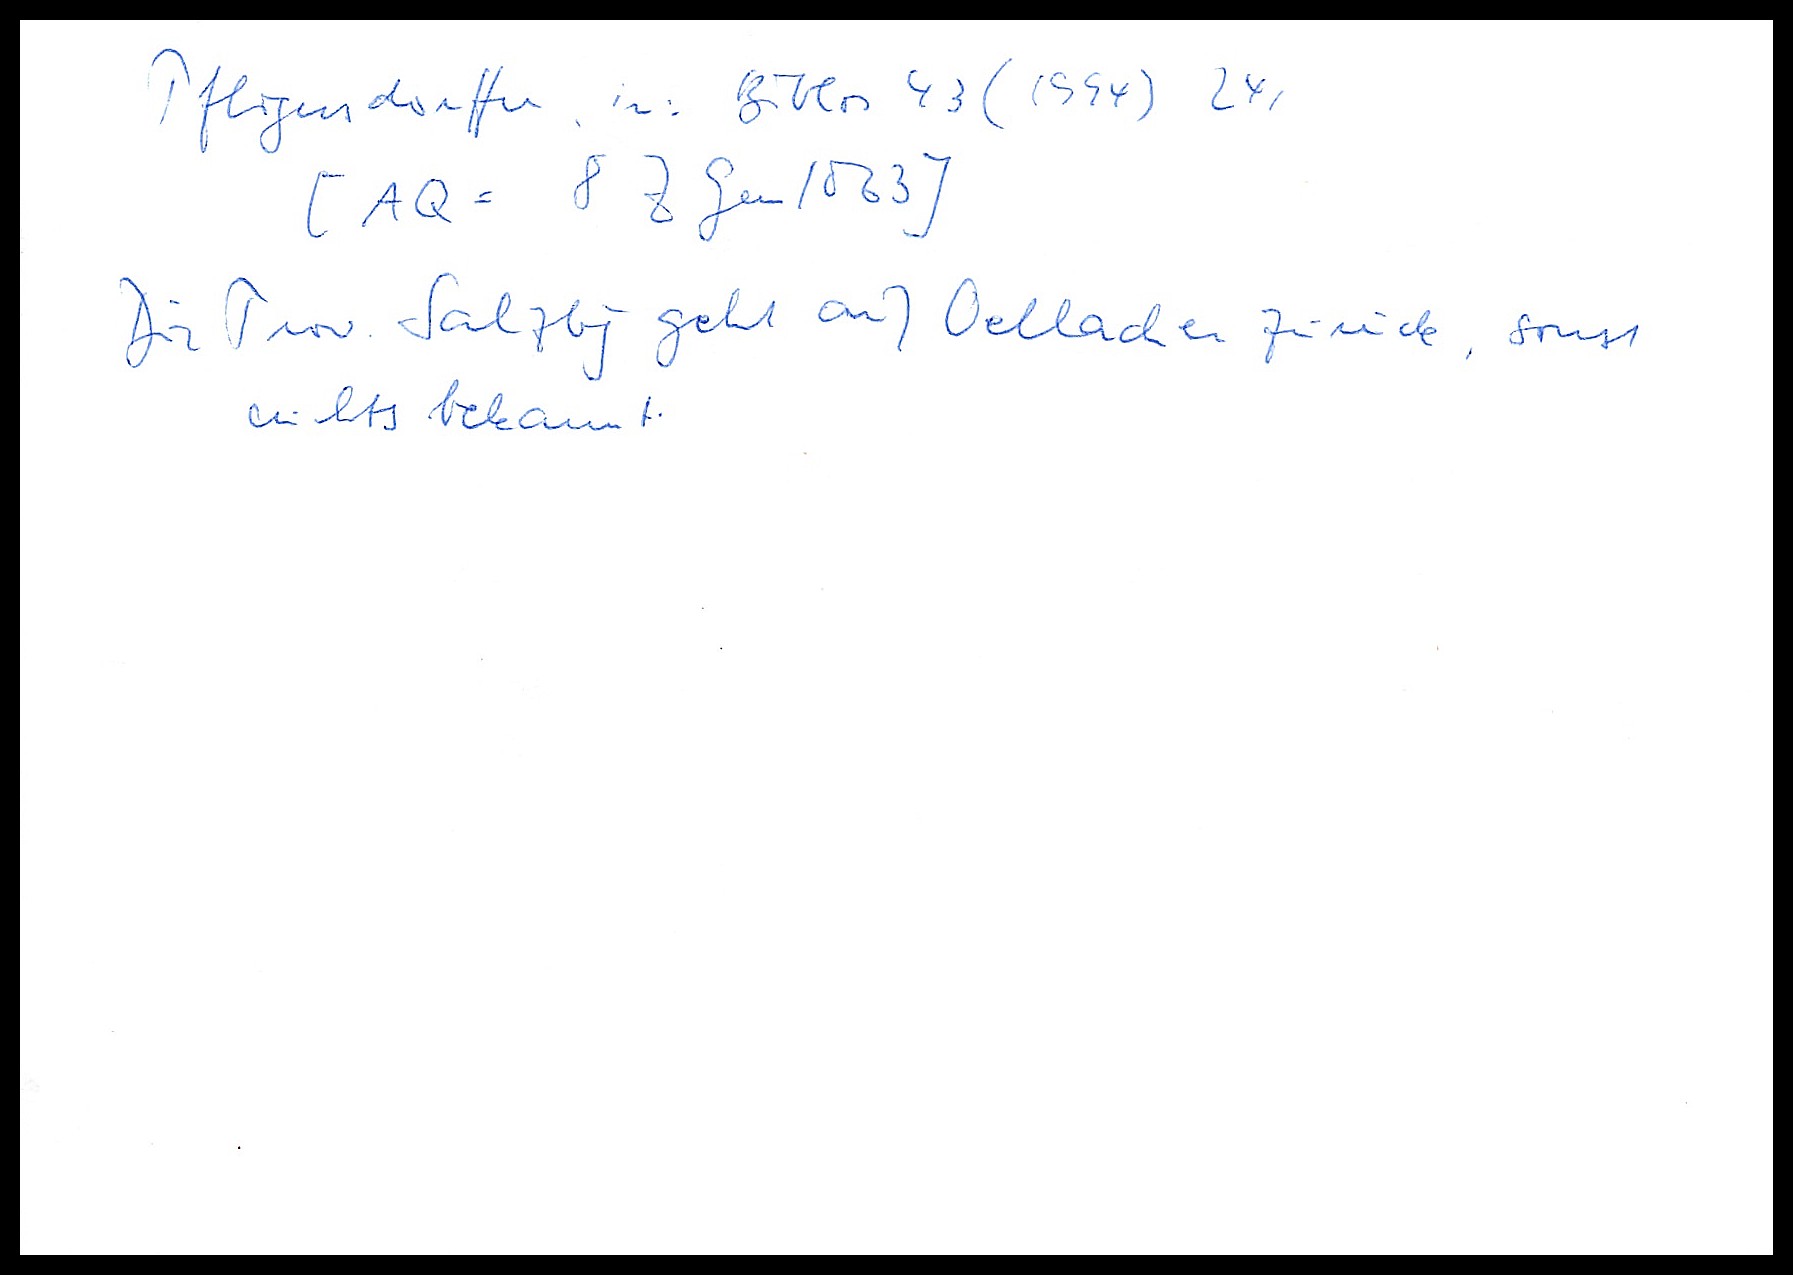 Pfligersdorffer, in: Biblos 43 (1994) 24,
[AQ = 8 Z Gen 1563]
Die Prov. Salzbg geht auf Oellacher zurück, sonst
nichts bekannt.